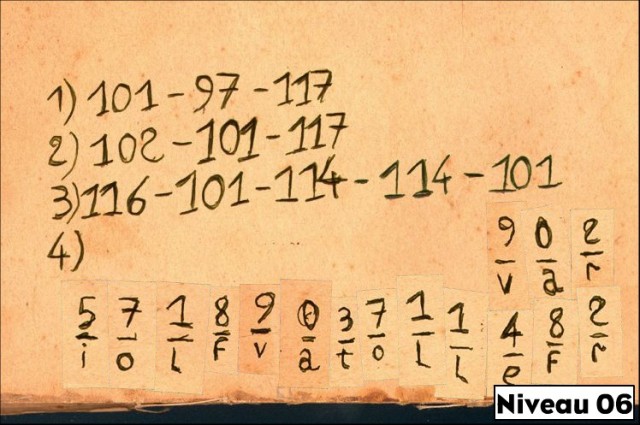 1) 101 - 97 - 117
2) 102 - 101 - 117
3) 116 - 101 - 114 - 114 - 101
4)
9 0 2
v a r
5 7 1 8 9 0 3 7 1 1 4 8 2
i o l F v a t o l l e F r
Niveau 06